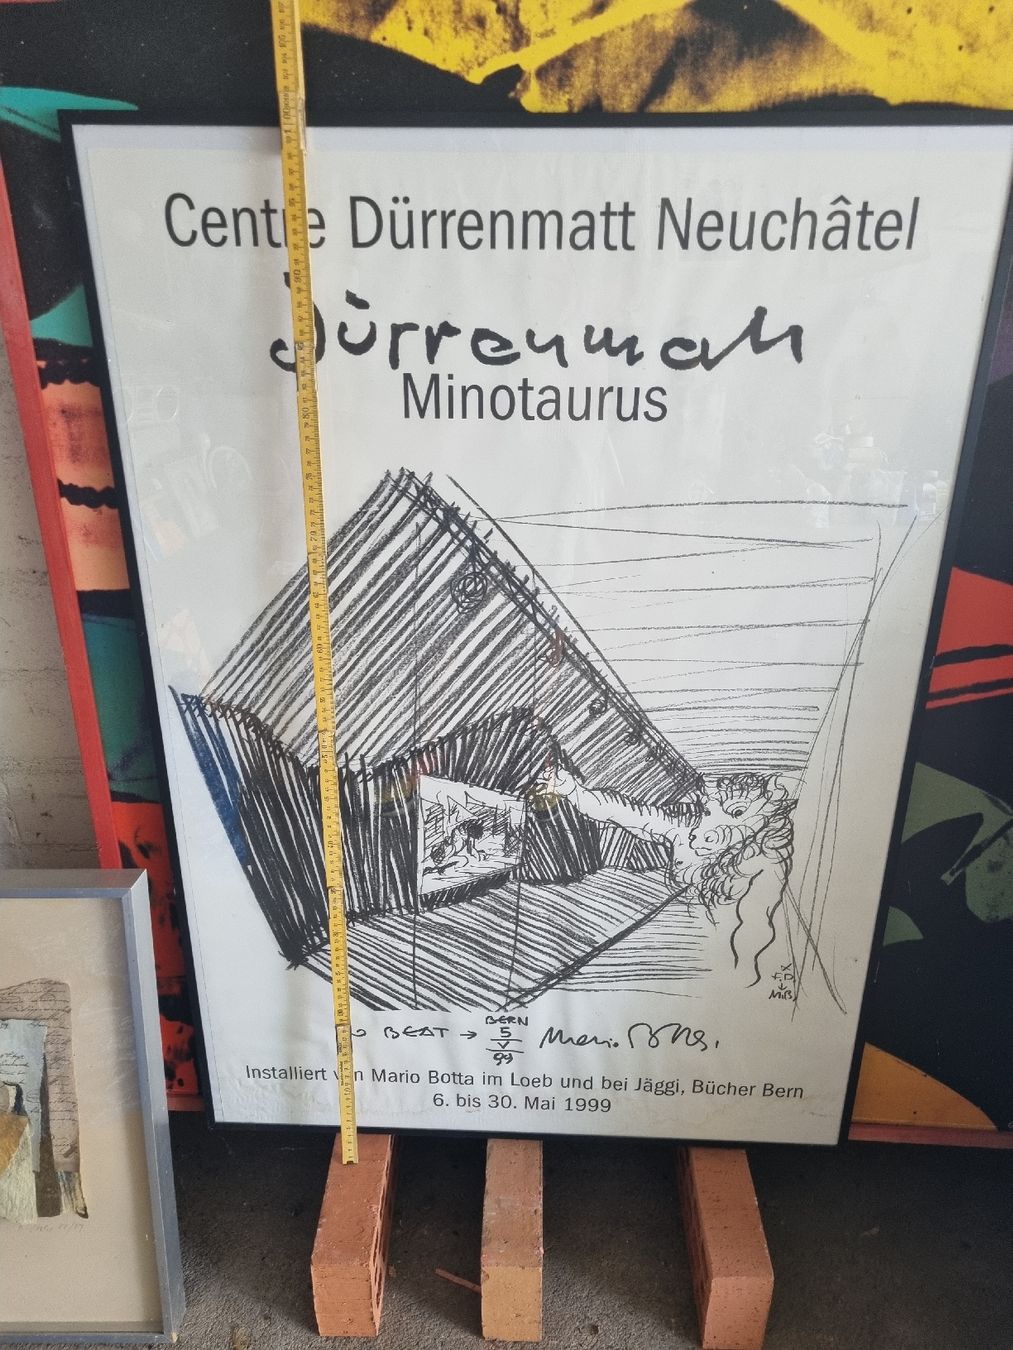 Centre Dürrenmatt Neuchâtel
Dürrenmatt
Minotaurus
BEAT → BERN
5
V
99
Mario Botta
Installiert von Mario Botta im Loeb und bei Jäggi, Bücher Bern
6. bis 30. Mai 1999